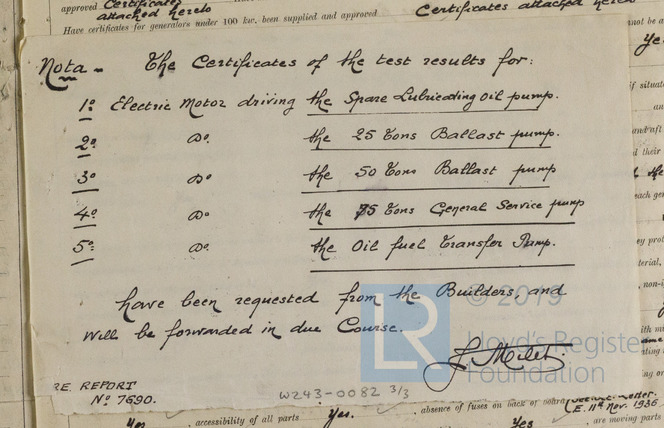 approved Certificates
attached hereto
Certificates attached hereto
Have certificates for generators under 100 kw. been supplied and approved
Nota - The Certificates of the test results for:
1º Electric Motor driving the Spare Lubricating Oil pump.
2º Dº the 25 Tons Ballast pump.
3º Dº the 50 Tons Ballast pump
4º Dº the 75 Tons General Service pump
5º Dº the Oil fuel Transfer Pump.
have been requested from the Builders, and
will be forwarded in due Course.
© 2019
LR
Lloyd's Register
Foundation
RE. REPORT
Nº 7690.
W243-0082 3/3
Yes , accessibility of all parts Yes. , absence of fuses on back of board
E. 11th Nov. 1936
Yes , are moving parts